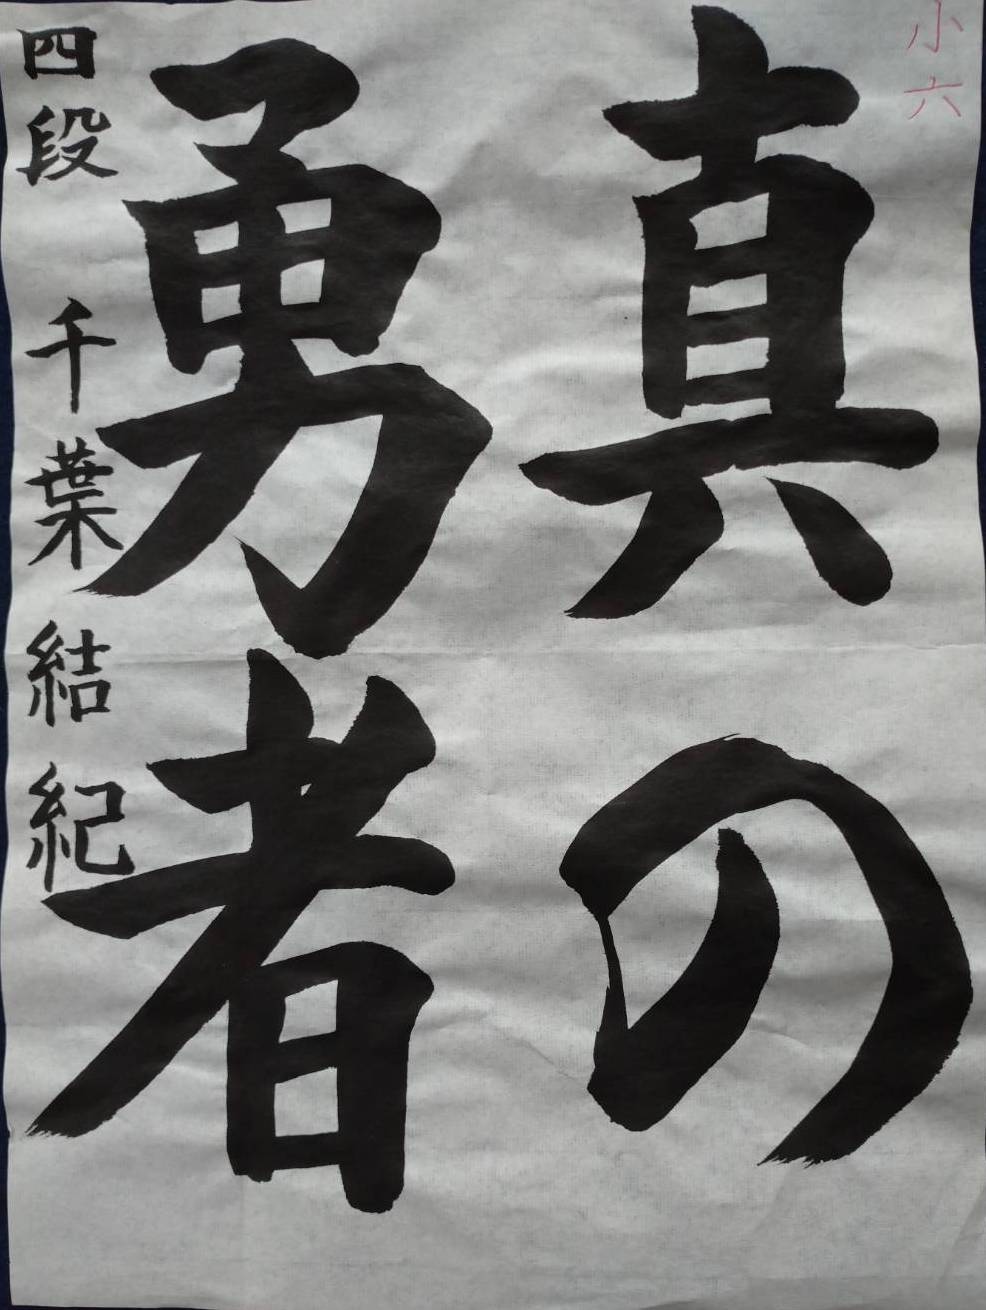 小六
真の
勇者
四段 千葉結紀